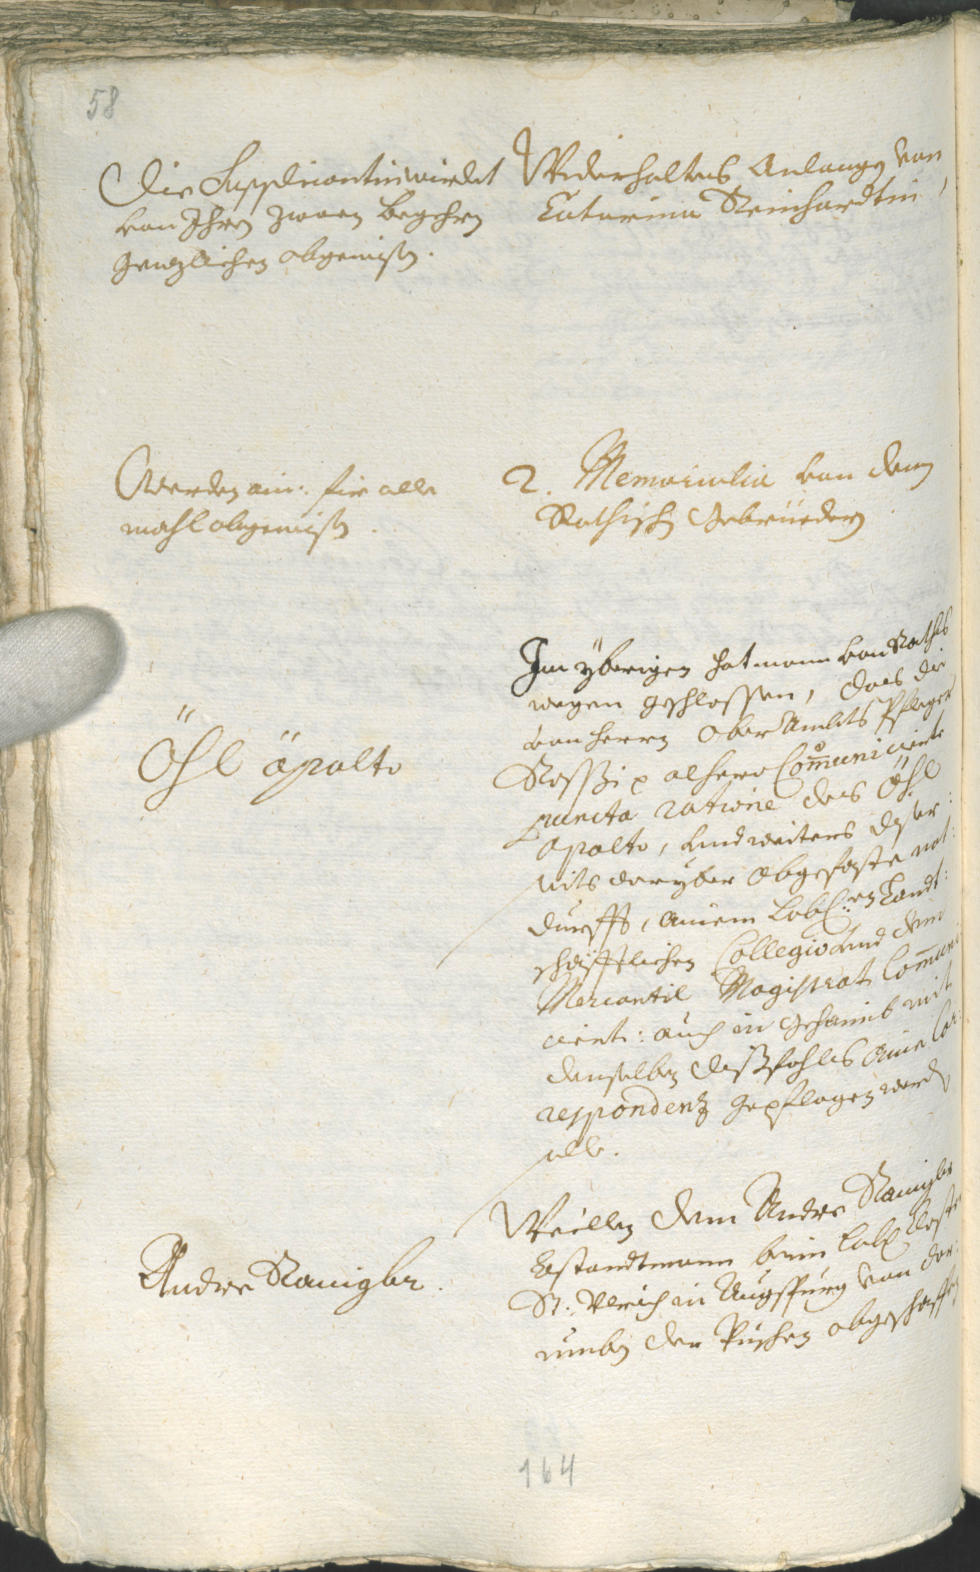 58
Die Supplicantin wirdet
von Ihren zwaen begehren
genzlichen abgewisen.
Widerholtes Anlangen von
Catarina Reinhardtin
Werden ain: für alle
mahl abgewisen.
2. Memorialia von denen
Rothischen Gebrüedern
Öhl apalto
Im yberigen hat mann von Raths
wegen geschlossen, das die
von Herrn Ober Ambts Pfleger
alhero Communicierte
puncta ratione des Öhl
apalto, und weiters diser:
seits daryber abgefaste not:
durfft, ainem Löbl: Landt:
schäfftlichen Collegio und dem
Mercantil Magistrat Communi
ciert: auch in gehaimb mit
denselben dißfahls aine Cor:
respondenz gepflogen werden
solle.
Andre Ramigler.
Weillen dem Andre Ramigler
Bstandtmann beim Löbl: Closter
St: Ulrich in Augspurg von dar:
umben der Puschen abgeschafft
164